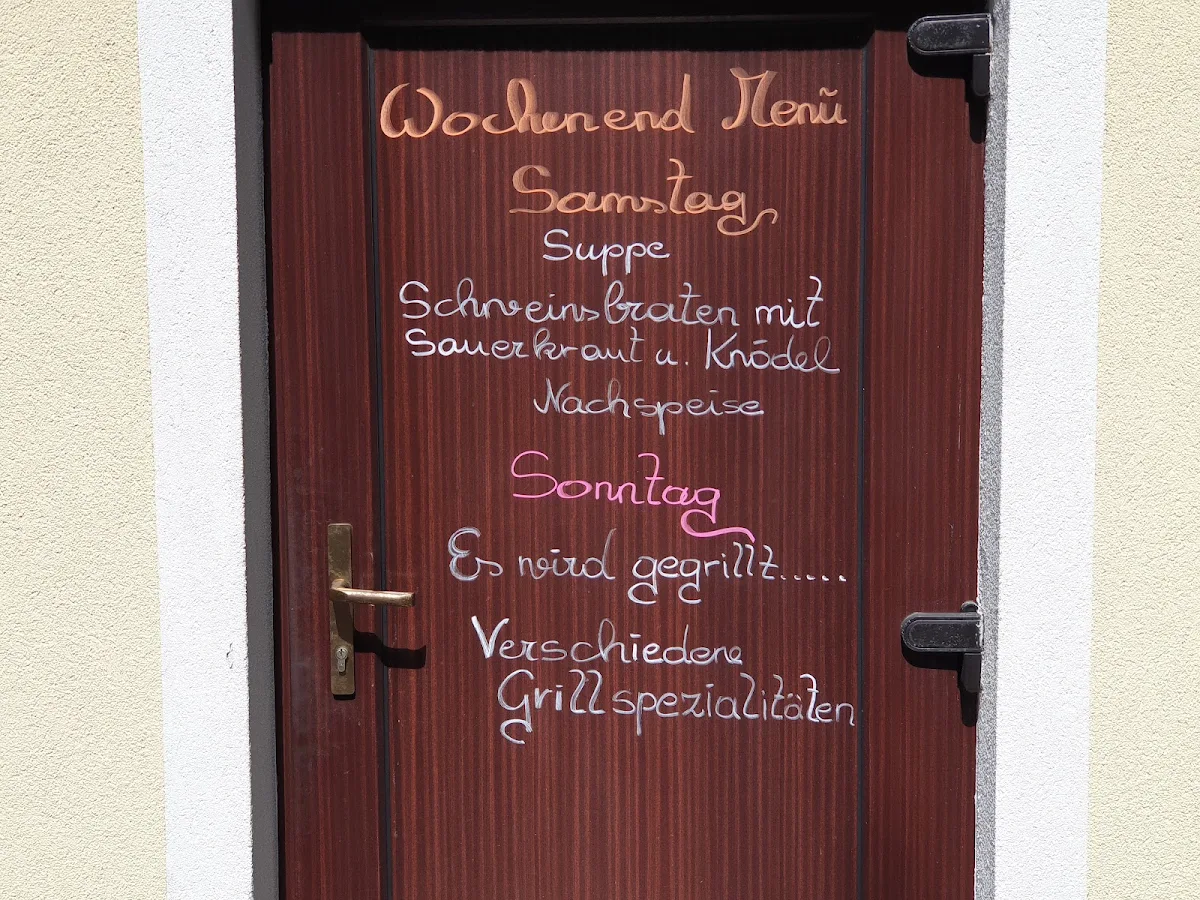 Wochenend Menü
Samstag
Suppe
Schweinsbraten mit
Sauerkraut u. Knödel
Nachspeise
Sonntag
Es wird gegrillt.....
Verschiedene
Grillspezialitäten